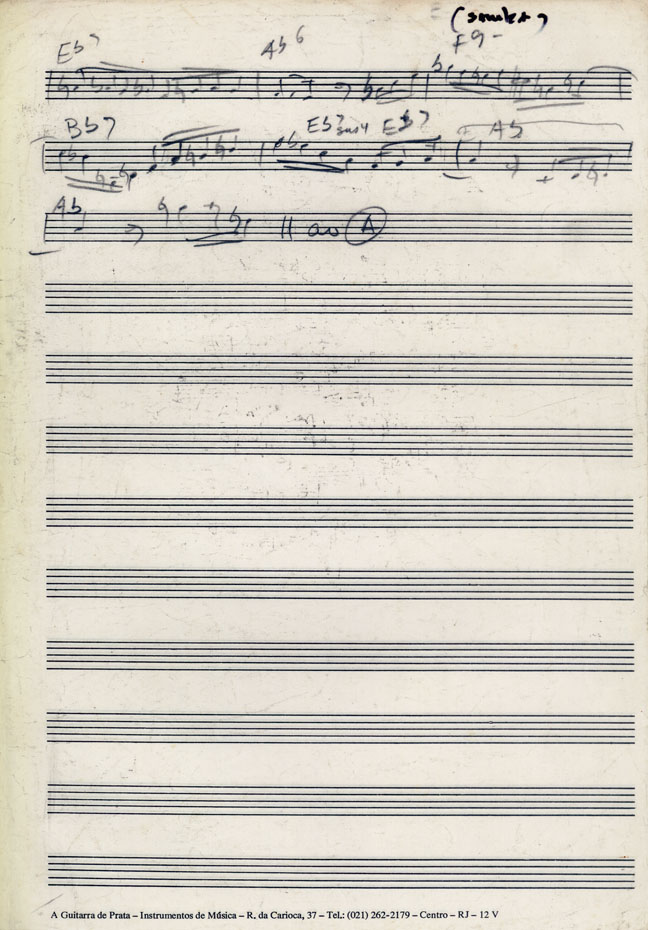 Eb7 Ab6 F9-
Bb7 Eb7sus4 Eb7 Ab
Ab || ao A
A Guitarra de Prata – Instrumentos de Música – R. da Carioca, 37 – Tel.: (021) 262-2179 – Centro – RJ – 12 V